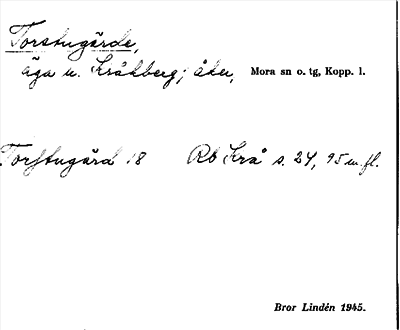 Torstugärde,
äga u. Kråkberg; åker, Mora sn o. tg, Kopp. l.
Torstugärd 18 Rb Krå s. 24, 95 m.fl.
Bror Lindén 1945.